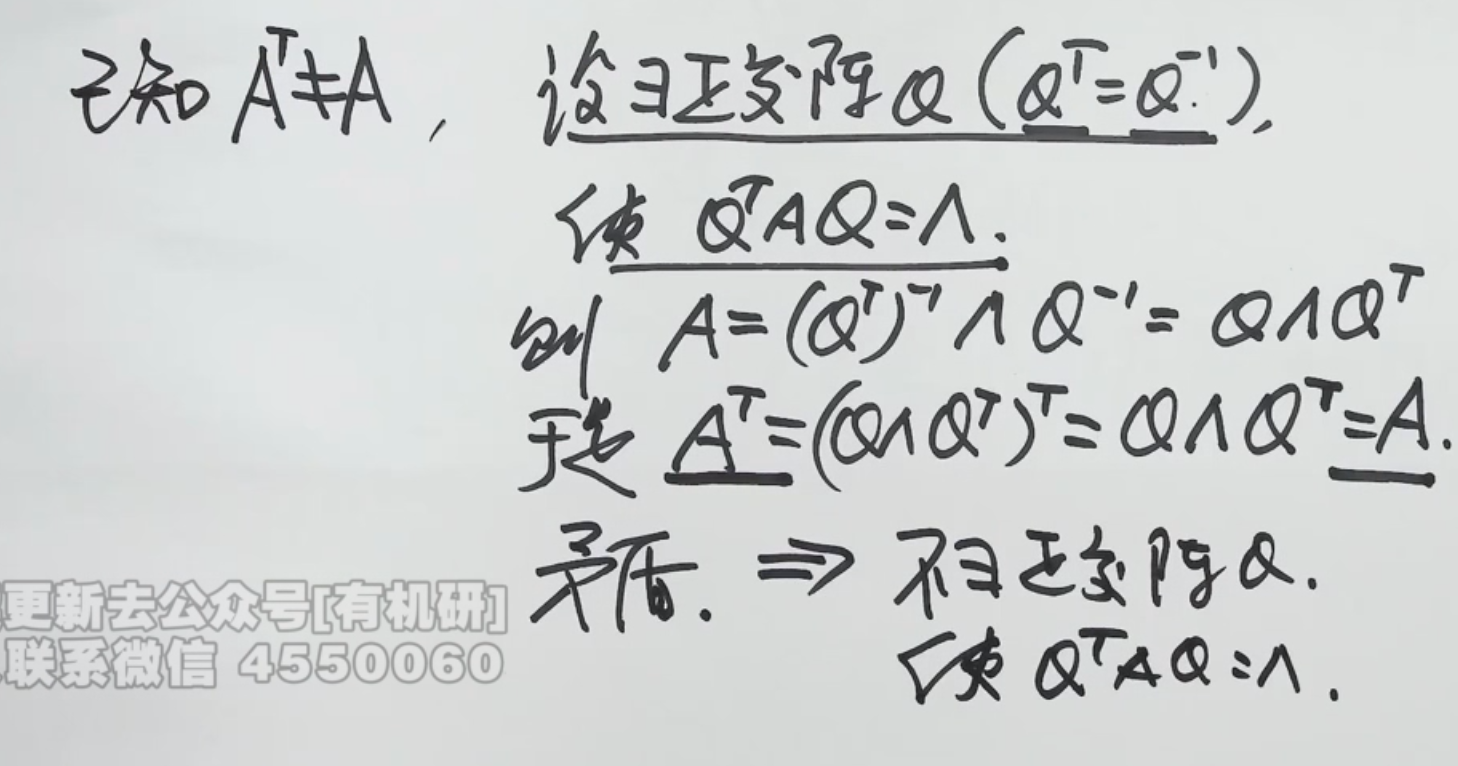 已知 Aᵀ≠A, 设∃正交阵Q (Qᵀ=Q⁻¹),
使 QᵀAQ=Λ.
则 A=(Qᵀ)⁻¹ΛQ⁻¹=QΛQᵀ
于是 Aᵀ=(QΛQᵀ)ᵀ=QΛQᵀ=A.
矛盾. ⇒ 不∃正交阵Q.
使 QᵀAQ=Λ.
更新去公众号[有机研]
联系微信 4550060